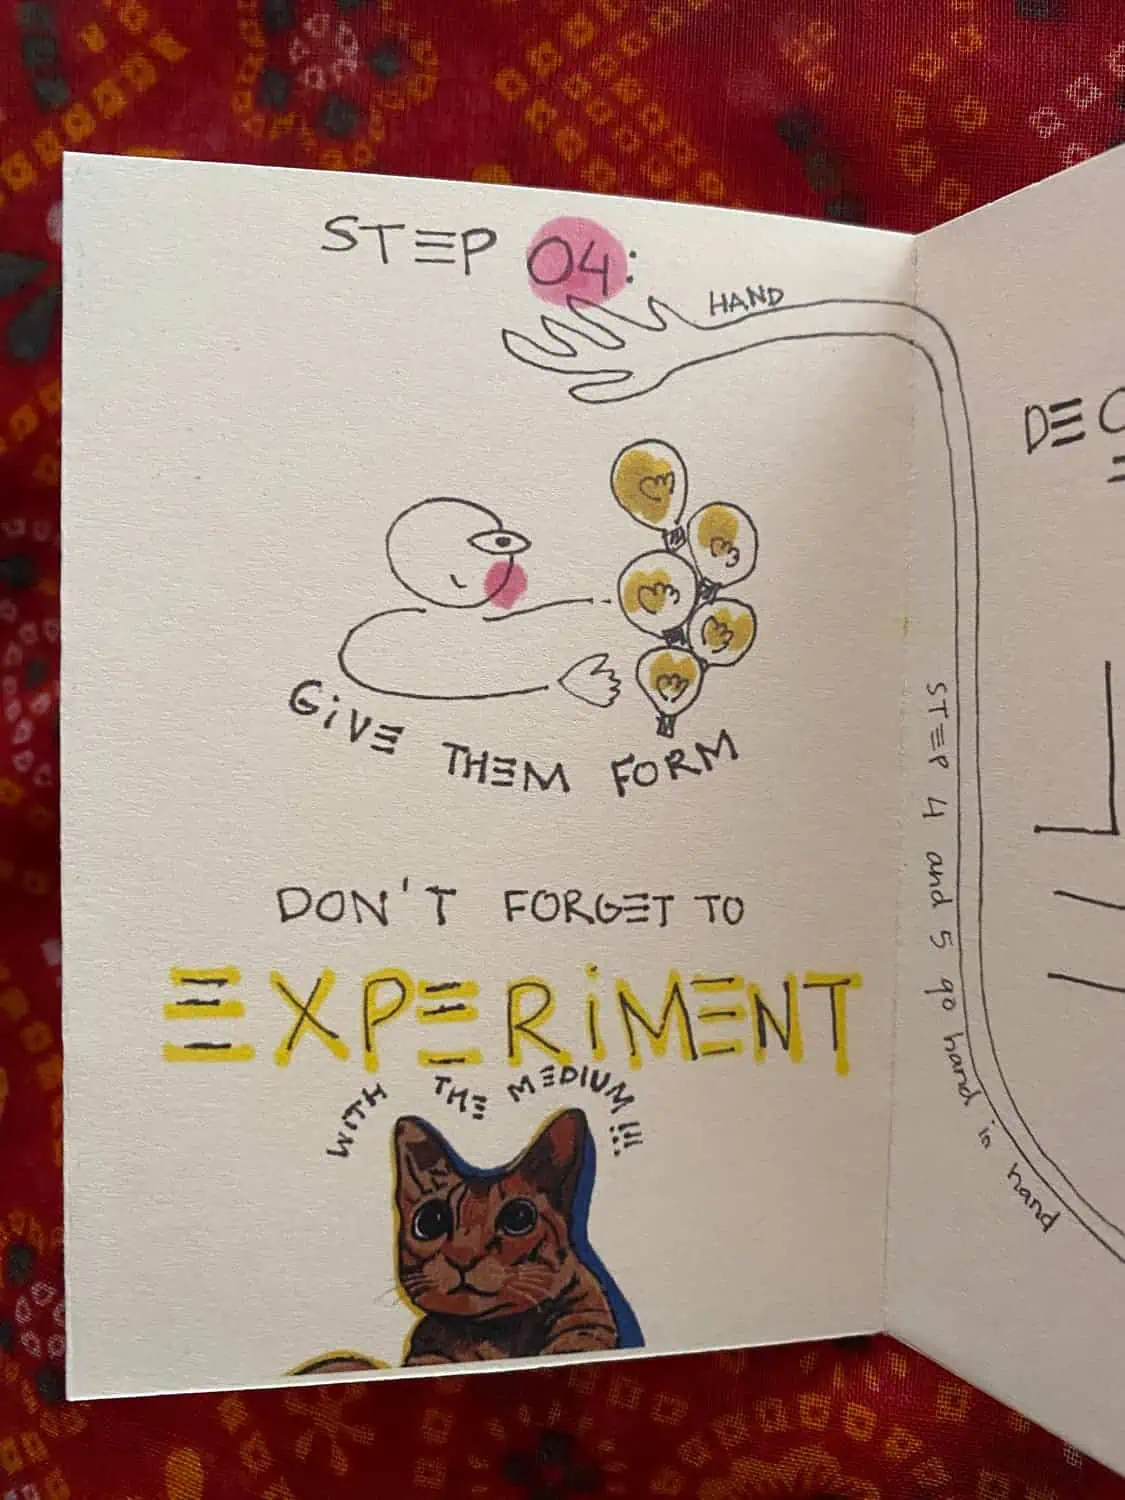 STEP 04:
HAND
GiVE THEM FORM
DON'T FORGET TO
EXPERiMENT
WITH THE MEDIUM!!!
STEP 4 and 5 go hand in hand